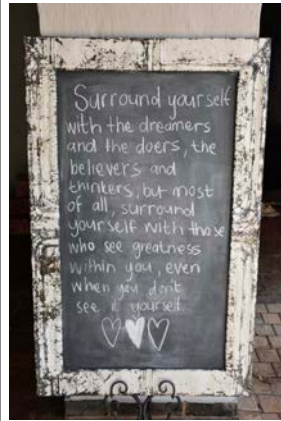 Surround yourself
with the dreamers
and the doers, the
believers and
thinkers, but most
of all, surround
yourself with those
who see greatness
within you, even
when you don't
see it yourself.